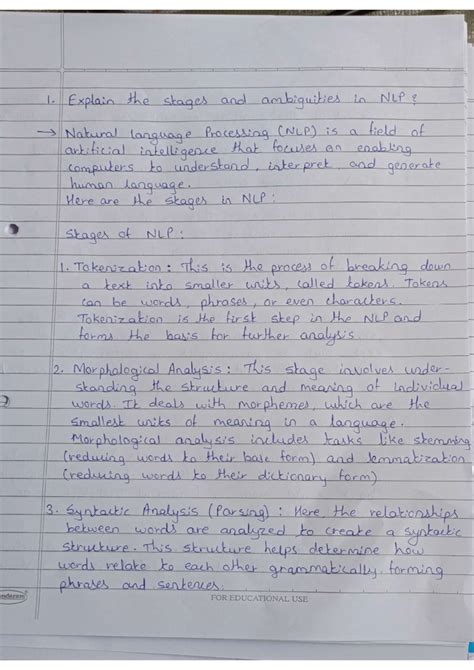 1. Explain the stages and ambiguities in NLP?
→ Natural language Processing (NLP) is a field of
artificial intelligence that focuses on enabling
computers to understand, interpret and generate
human language.
Here are the stages in NLP:
Stages of NLP:
1. Tokenization: This is the process of breaking down
a text into smaller units, called tokens. Tokens
can be words, phrases, or even characters.
Tokenization is the first step in the NLP and
forms the basis for further analysis.
2. Morphological Analysis: This stage involves under-
standing the structure and meaning of individual
words. It deals with morphemes, which are the
smallest units of meaning in a language.
Morphological analysis includes tasks like stemming
(reducing words to their base form) and lemmatization
(reducing words to their dictionary form)
3. Syntactic Analysis (Parsing): Here the relationships
between words are analyzed to create a syntactic
structure. This structure helps determine how
words relate to each other grammatically, forming
phrases and sentences.
FOR EDUCATIONAL USE